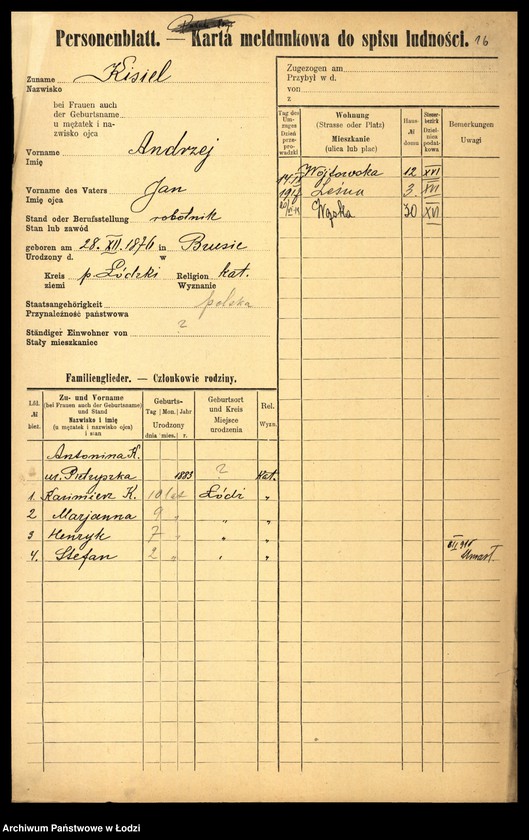 Personenblatt. — Karta meldunkowa do spisu ludności. 16
Zuname Kisiel
Nazwisko
bei Frauen auch
der Geburtsname
u mężatek i na-
zwisko ojca
Vorname Andrzej
Imię
Vorname des Vaters Jan
Imię ojca
Stand oder Berufsstellung robotnik
Stan lub zawód
geboren am 28. XII. 1876 in
Urodzony d. w
Kreis p. Łódzki Religion kat.
ziemi Wyznanie
Staatsangehörigkeit polska
Przynależność państwowa
Ständiger Einwohner von ?
Stały mieszkaniec
Zugezogen am
Przybył w d.
von
z
Tag des Umzuges Dzień przeprowadzki
Wohnung
(Strasse oder Platz)
Mieszkanie
(ulica lub plac)
Haus № domu
Steuerbezirk Dzielnica podatkowa
Bemerkungen
Uwagi
Wójtowska 12 XVI
Leśna 3 XVI
Wąska 30 XVI
Familienglieder. — Członkowie rodziny.
Lfd. № bież.
Zu- und Vorname
(bei Frauen auch der Geburtsname)
und Stand
Nazwisko i imię
(u mężatek i nazwisko ojca)
i stan
Geburts-
Tag Mon. Jahr
Urodzony
dnia mies. r.
Geburtsort
und Kreis
Miejsce
urodzenia
Rel.
Wyzn.
Antonina K.
ur. Pietryszka 1883 ? kat.
1. Kazimierz K. 10 lat Łódź "
2 Marjanna 9 " " "
3 Henryk 7 " " "
4. Stefan 2 " " " Umarł.
Archiwum Państwowe w Łodzi